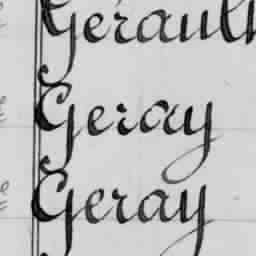 Gerault
Geray
Geray